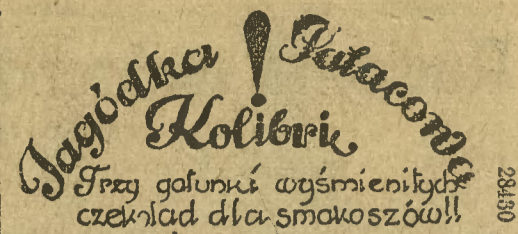 Jagódka ! Pałacowa
Kolibri
Trzy gatunki wyśmienitych
czekolad dla smakoszów!!
28430